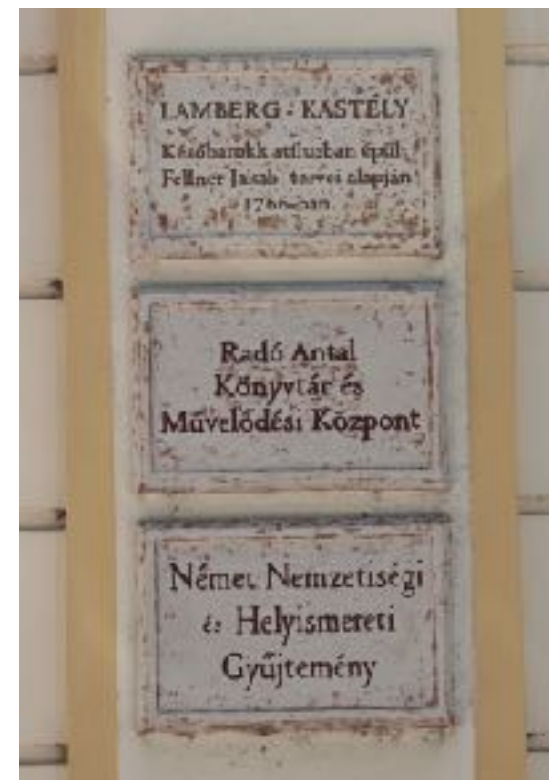 LAMBERG - KASTÉLY
Későbarokk stílusban épült
Fellner Jakab tervei alapján
1766-ban
Radó Antal
Könyvtár és
Művelődési Központ
Német Nemzetiségi
és Helyismereti
Gyűjtemény